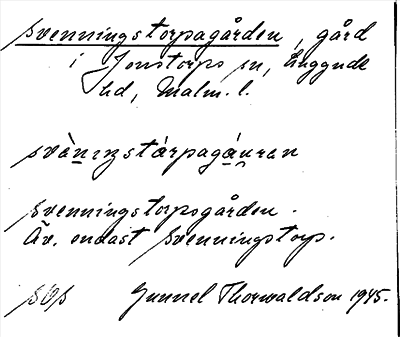 Svenningstorpagården, gård
i Jonstorps sn, Luggude
hd, Malm. l.
svèniŋstȧrpagȧ́uran
Svenningstorpsgården.
Äv. endast Svenningstorp.
sOs Gunnel Thorwaldson 1945.